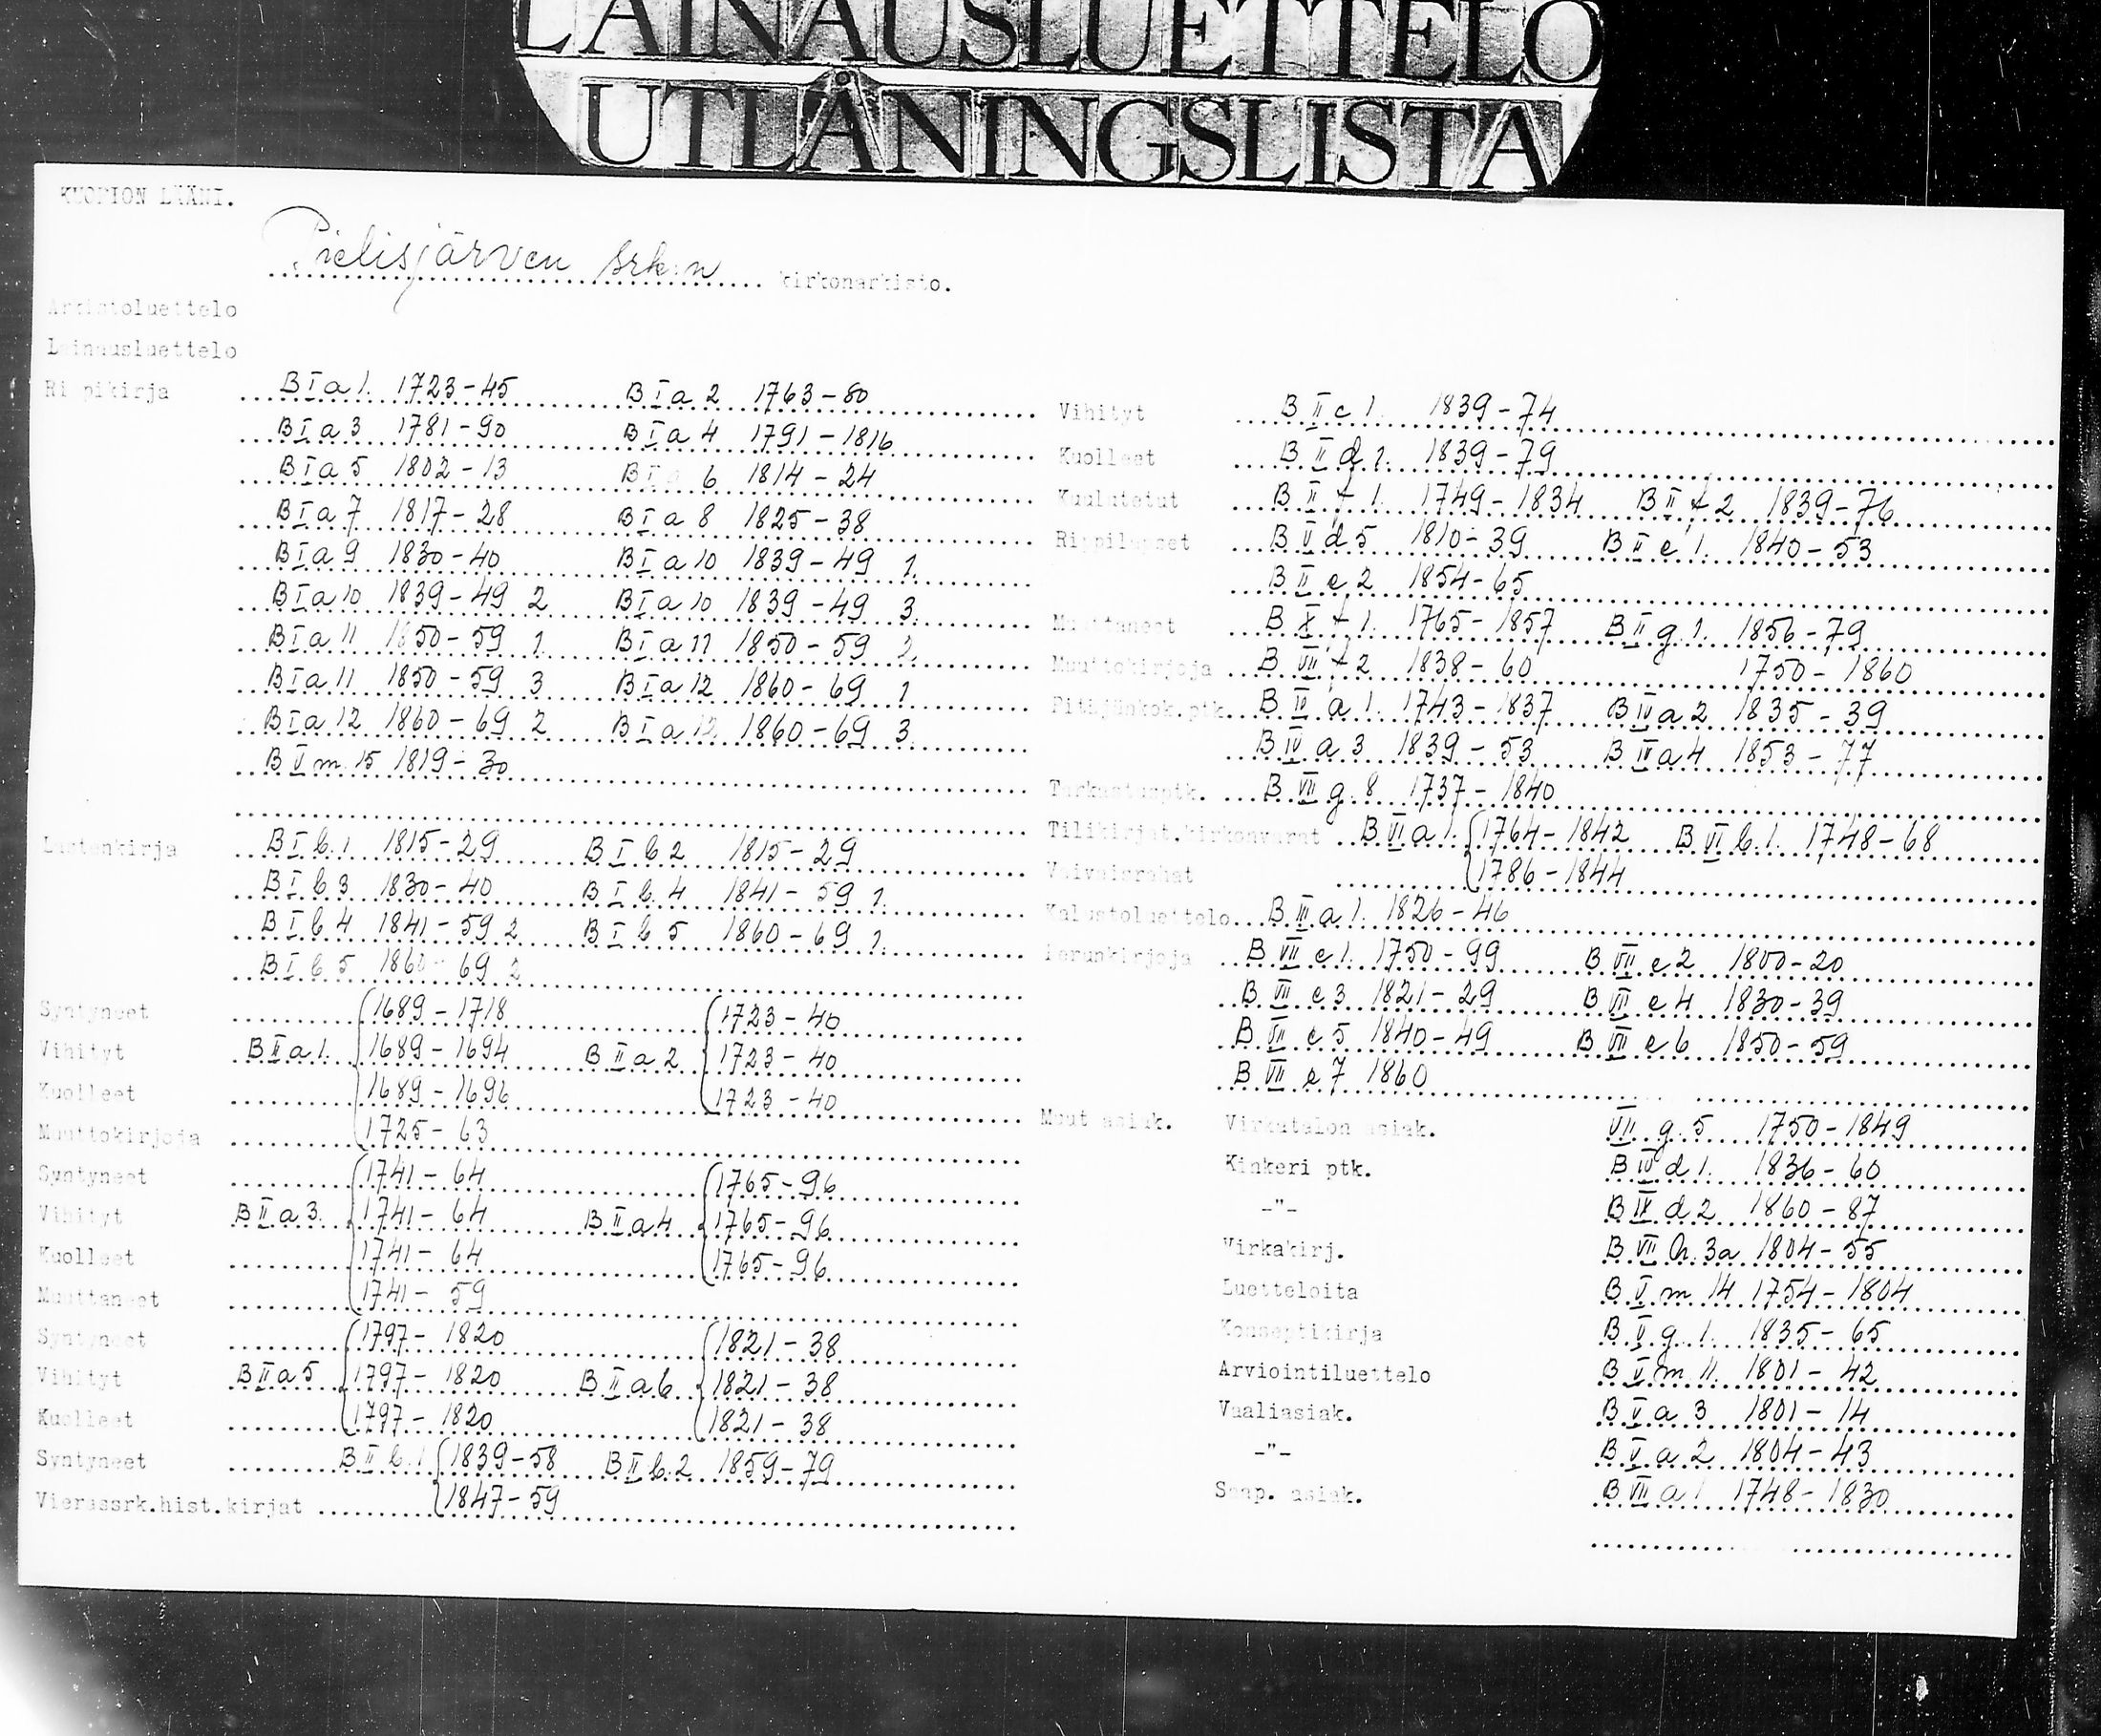 LAINAUSLUETTELO
UTLÅNINGSLISTA
KUOPION LÄÄNI.
Pielisjärven srk:n kirkonarkisto.
Arkistoluettelo
Lainausluettelo
Rippikirja B I a 1. 1723-45 B I a 2 1763-80
B I a 3 1781-90 B I a 4 1791-1816
B I a 5 1802-13 B I a 6 1814-24
B I a 7 1817-28 B I a 8 1825-38
B I a 9 1830-40 B I a 10 1839-49 1.
B I a 10 1839-49 2 B I a 10 1839-49 3.
B I a 11 1850-59 1. B I a 11 1850-59 2.
B I a 11 1850-59 3 B I a 12 1860-69 1
B I a 12 1860-69 2 B I a 12 1860-69 3
B V m 15 1819-30
Lastenkirja B I b 1 1815-29 B I b 2 1815-29
B I b 3 1830-40 B I b 4 1841-59 1.
B I b 4 1841-59 2 B I b 5 1860-69 1.
B I b 5 1860-69 2
Syntyneet 1689-1718 1723-40
Vihityt B II a 1. 1689-1694 B II a 2 1723-40
Kuolleet 1689-1696 1723-40
Muuttokirjoja 1725-63
Syntyneet 1741-64 1765-96
Vihityt B II a 3. 1741-64 B II a 4 1765-96
Kuolleet 1741-64 1765-96
Muuttaneet 1741-59
Syntyneet 1797-1820 1821-38
Vihityt B II a 5 1797-1820 B II a 6 1821-38
Kuolleet 1797-1820 1821-38
Syntyneet B II b 1 1839-58 B II b 2 1859-79
Vierassrk.hist.kirjat 1847-59
Vihityt B II c 1. 1839-74
Kuolleet B II d 1. 1839-79
Kuulutetut B II f 1. 1749-1834 B II f 2 1839-76
Rippilapset B V d 5 1810-39 B II e 1. 1840-53
B II e 2 1854-65
Muuttaneet B X f 1. 1765-1857 B II g 1. 1856-79
Muuttokirjoja B VII f 2 1838-60 1750-1860
Pitäjänkok.ptk. B IV a 1. 1743-1837 B IV a 2 1835-39
B IV a 3 1839-53 B IV a 4 1853-77
Tarkastusptk. B VII g 8 1737-1840
Tilikirjat.kirkonvarat B VI a 1. 1764-1842 B VI b 1. 1748-68
Vaivaisrahat 1786-1844
Kalustoluettelo B III a 1. 1826-46
Perunkirjoja B VII e 1. 1750-99 B VII e 2 1800-20
B VII e 3 1821-29 B VII e 4 1830-39
B VII e 5 1840-49 B VII e 6 1850-59
B VII e 7 1860
Muut asiak. Virkatalon asiak. VII g 5 1750-1849
Kinkeri ptk. B IV d 1. 1836-60
-"- B IX d 2 1860-87
Virkakirj. B VII h. 3a 1804-55
Luetteloita B V m 14 1754-1804
Konseptikirja B V g 1. 1835-65
Arviointiluettelo B V m 11. 1801-42
Vaaliasiak. B V a 3 1801-14
-"- B V a 2 1804-43
Saap. asiak. B VII a 1 1748-1830